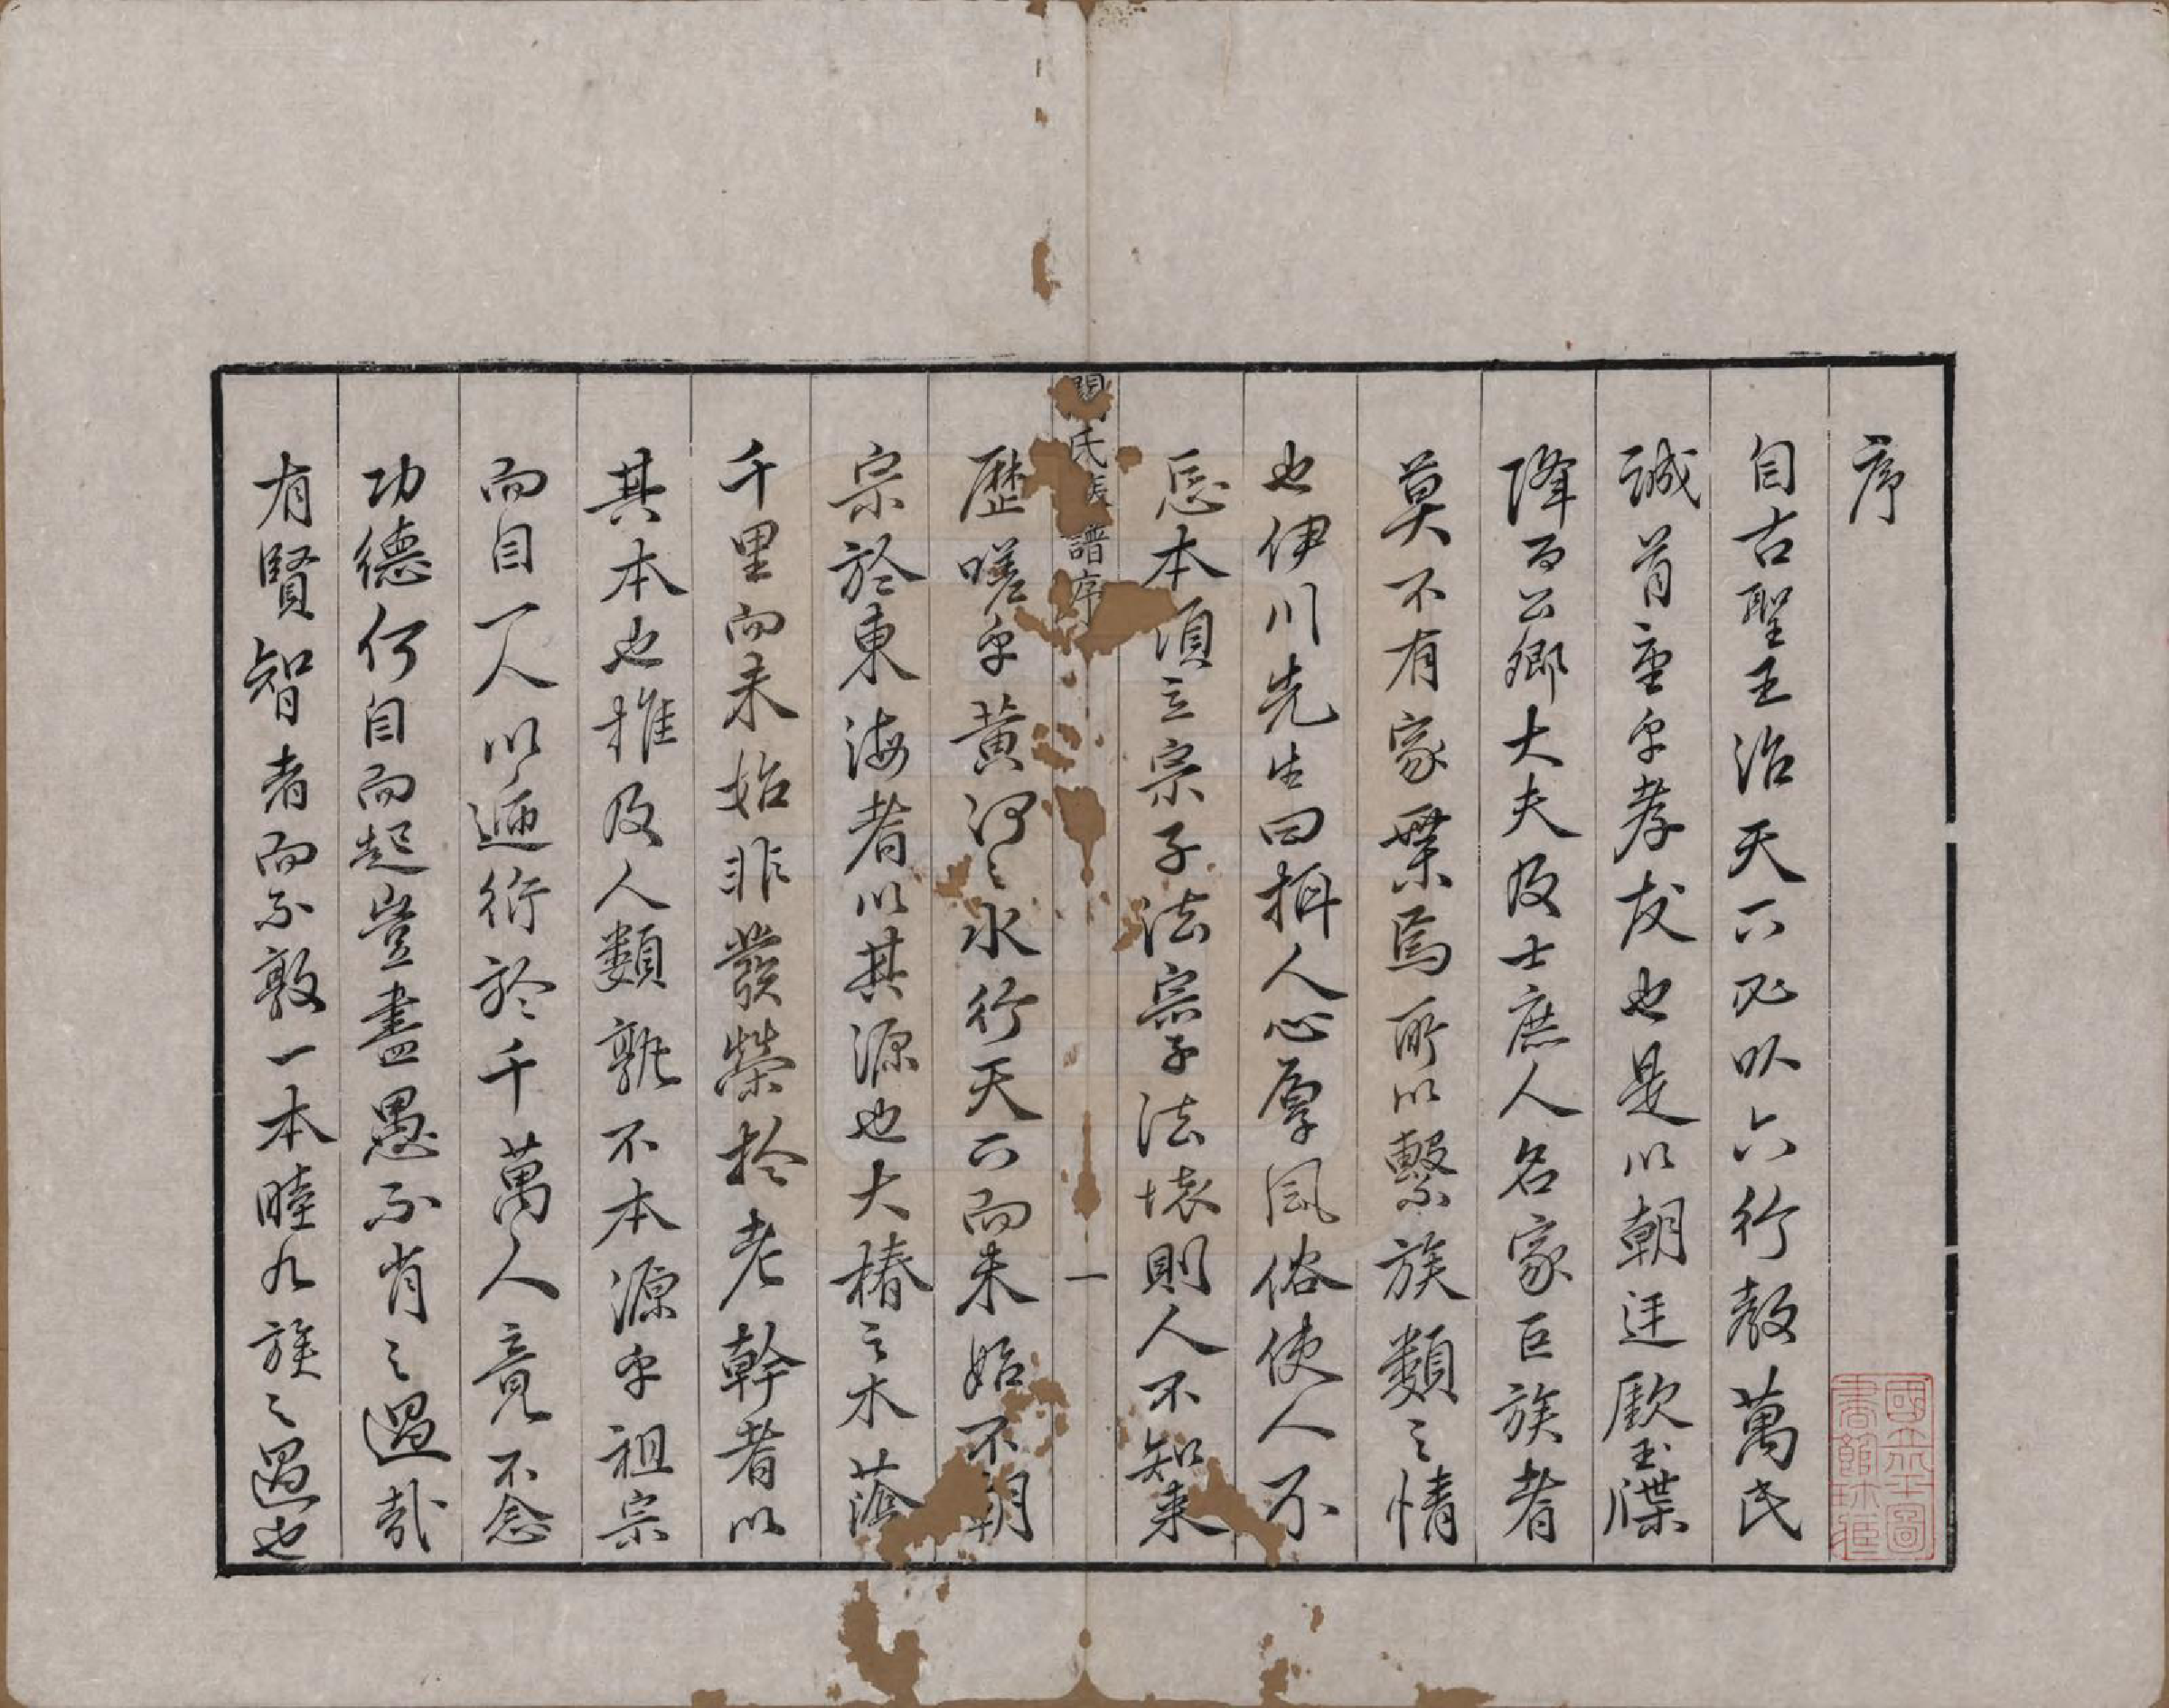 序
自古聖王治天下必以六行教萬民
誠首重乎孝友也是以朝廷厥玉牒
降而公卿大夫及士庶人名家巨族者
莫不有家乘焉所以繫族類之情
也伊川先生曰搆人心厚風俗使人不
忘本須立宗子法宗子法壞則人不知來
氏族譜序
一
歷嗟乎黃河之水行天下而来始不朝
宗於東海者以其源也大椿之木蔭
千里而未始非發榮於老幹者以
其本也推及人類孰不本源乎祖宗
而自一人以遞衍於千萬人竟不念
功德何自而起豈盡愚不肖之過哉
有賢智者而不敦一本睦九族之過也
國立北平圖
書館珍藏